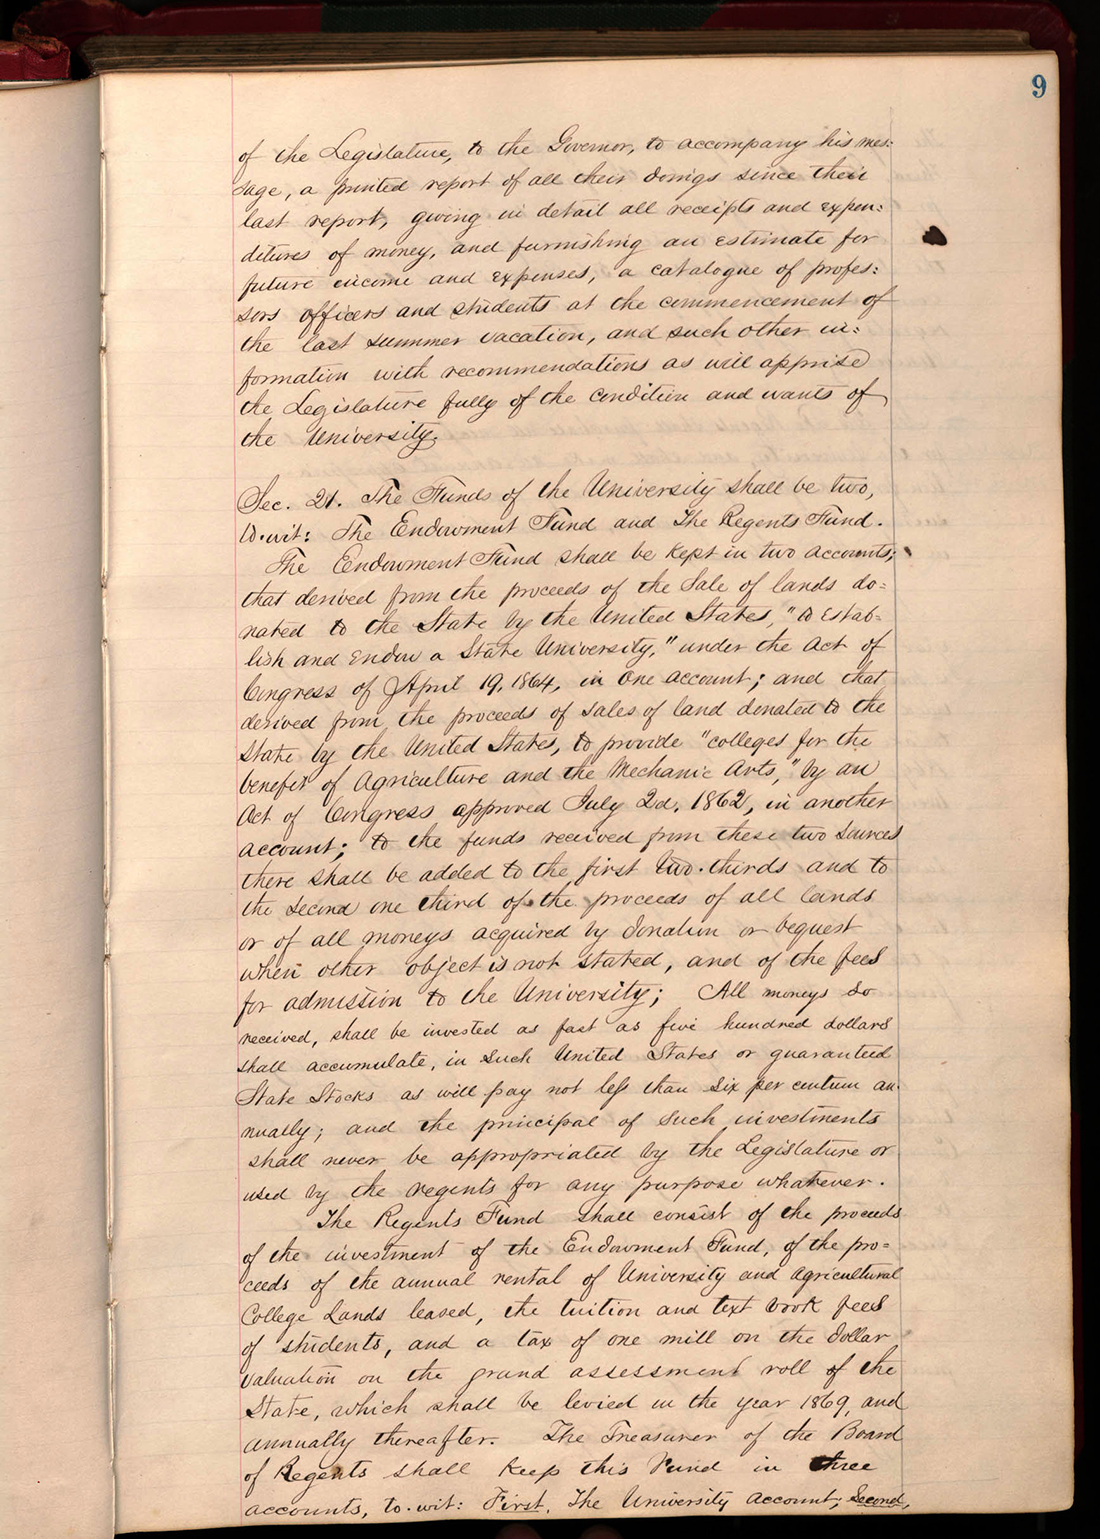 9
of the Legislature, to the Governor, to accompany his mes:
sage, a printed report of all their doings since their
last report, giving in detail all receipts and expen:
ditures of money, and furnishing an estimate for
future income and expenses, a catalogue of profes:
sors officers and students at the commencement of
the last summer vacation, and such other in:
formation with recommendations as will apprise
the Legislature fully of the condition and wants of
the University.
Sec. 21. The Funds of the University shall be two,
to-wit: The Endowment Fund and The Regents Fund.
The Endowment Fund shall be kept in two accounts;
that derived from the proceeds of the Sale of lands do=
nated to the State by the United States, "to estab-
lish and endow a State University," under the Act of
Congress of April 19, 1864, in one account; and that
derived from the proceeds of sales of land donated to the
State by the United States, to provide "colleges for the
benefit of Agriculture and the Mechanic Arts," by an
Act of Congress approved July 2d, 1862, in another
account; to the funds received from these two sources
there shall be added to the first two-thirds and to
the second one third of the proceeds of all lands
or of all moneys acquired by donation or bequest
when other object is not stated, and of the fees
for admission to the University; All moneys so
received, shall be invested as fast as five hundred dollars
shall accumulate, in such United States or guaranteed
State Stocks as will pay not less than six per centum an-
nually; and the principal of such investments
shall never be appropriated by the Legislature or
used by the regents for any purpose whatever.
The Regents Fund shall consist of the proceeds
of the investment of the Endowment Fund, of the pro=
ceeds of the annual rental of University and Agricultural
College Lands leased, the tuition and text book fees
of students, and a tax of one mill on the dollar
valuation on the grand assessment roll of the
State, which shall be levied in the year 1869, and
annually thereafter. The Treasurer of the Board
of Regents shall keep this Fund in three
accounts, to-wit: First, The University account; Second,